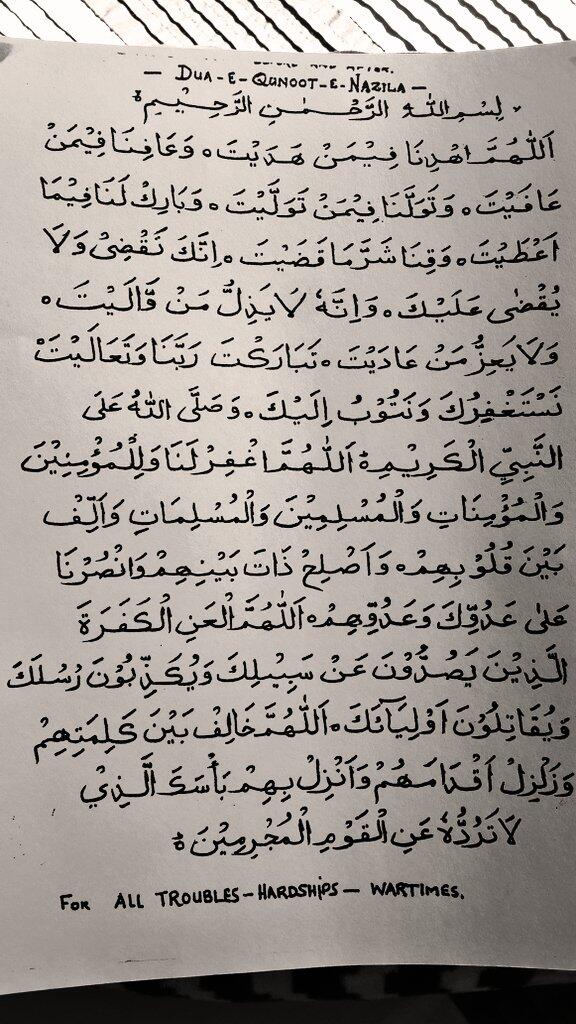 BEFORE AND AFTER.
— DUA-E-QUNOOT-E-NAZILA —
بِسْمِ اللهِ الرَّحْمٰنِ الرَّحِيْمِ
اَللّٰهُمَّ اهْدِنَا فِيْمَنْ هَدَيْتَ ۰ وَعَافِنَا فِيْمَنْ
عَافَيْتَ ۰ وَتَوَلَّنَا فِيْمَنْ تَوَلَّيْتَ ۰ وَبَارِكْ لَنَا فِيْمَا
اَعْطَيْتَ ۰ وَقِنَا شَرَّ مَا قَضَيْتَ ۰ اِنَّكَ تَقْضِىْ وَلَا
يُقْضٰى عَلَيْكَ ۰ وَاِنَّهٗ لَا يَذِلُّ مَنْ وَّالَيْتَ ۰
وَلَا يَعِزُّ مَنْ عَادَيْتَ ۰ تَبَارَكْتَ رَبَّنَا وَتَعَالَيْتَ
نَسْتَغْفِرُكَ وَنَتُوْبُ اِلَيْكَ ۰ وَصَلَّى اللهُ عَلَى
النَّبِيِّ الْكَرِيْمِ ۃ اَللّٰهُمَّ اغْفِرْ لَنَا وَلِلْمُؤْمِنِيْنَ
وَالْمُؤْمِنَاتِ وَالْمُسْلِمِيْنَ وَالْمُسْلِمَاتِ وَاَلِّفْ
بَيْنَ قُلُوْبِهِمْ ۰ وَاَصْلِحْ ذَاتَ بَيْنِهِمْ وَانْصُرْنَا
عَلٰى عَدُوِّكَ وَعَدُوِّهِمْ ۰ اَللّٰهُمَّ الْعَنِ الْكَفَرَةَ
الَّذِيْنَ يَصُدُّوْنَ عَنْ سَبِيْلِكَ وَيُكَذِّبُوْنَ رُسُلَكَ
وَيُقَاتِلُوْنَ اَوْلِيَآئَكَ ۰ اَللّٰهُمَّ خَالِفْ بَيْنَ كَلِمَتِهِمْ
وَزَلْزِلْ اَقْدَامَهُمْ وَاَنْزِلْ بِهِمْ بَأْسَكَ الَّذِيْ
لَا تَرُدُّهٗ عَنِ الْقَوْمِ الْمُجْرِمِيْنَ ۃ
FOR ALL TROUBLES-HARDSHIPS — WARTIMES.